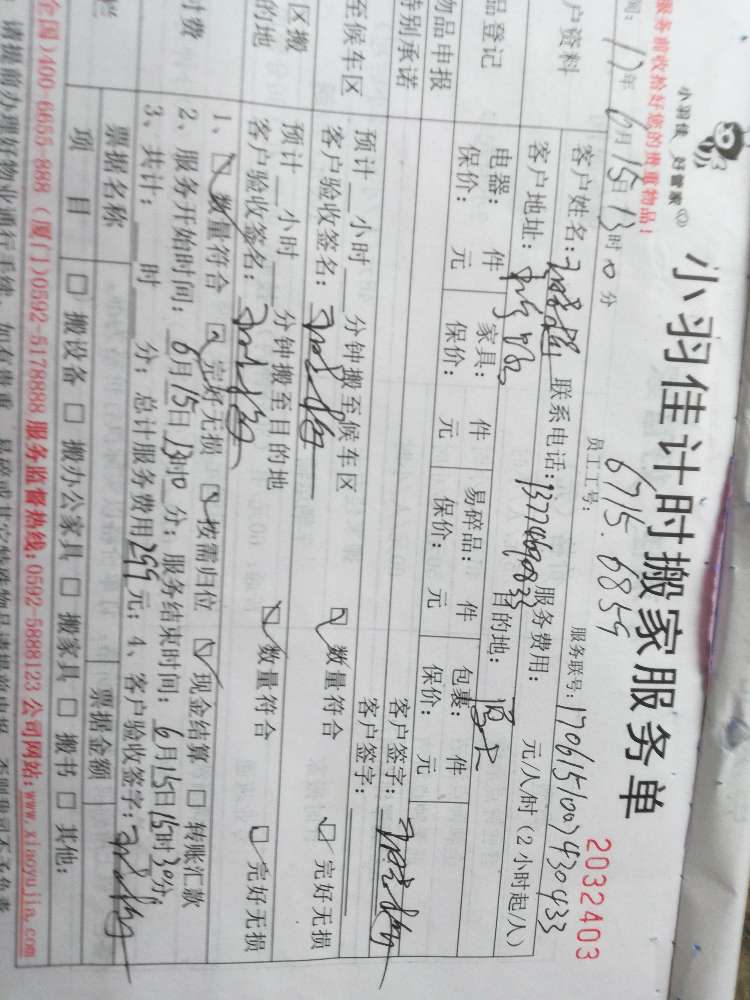 服务前收拾好您的贵重物品!
小羽佳 好管家
小羽佳计时搬家服务单
2032403
间: 17年6月15日13时0分
员工工号: 6715.6859
服务联号: 1706151007430433
户资料
客户姓名: 联系电话: 服务费用: 元/人/时(2小时起/人)
客户地址: 目的地:
品登记
电器: 件 家具: 件 易碎品: 件 包裹: 件
保价: 元 保价: 元 保价: 元 保价: 元
物品申报
特别承诺
客户签字:
客户签字:
至候车区
预计__小时__分钟搬至候车区
客户验收签名: 数量符合 完好无损
区搬
的地
预计__小时__分钟搬至目的地
客户验收签名: 数量符合 完好无损
时费
1、 数量符合 完好无损 按需归位 现金结算 转账汇款
2、服务开始时间: 6月15日13时0分; 服务结束时间: 6月15日15时30分;
3、共计: __时__分; 总计服务费用299元; 4、客户验收签字:
票据名称 票据金额
项目 搬设备 搬办公家具 搬家具 搬书 其他:
全国)400-6655-888 (厦门)0592-5178888 服务监督热线: 0592-5888123 公司网站: www.xiaoyujia.com
请提前办理好物业通行手续